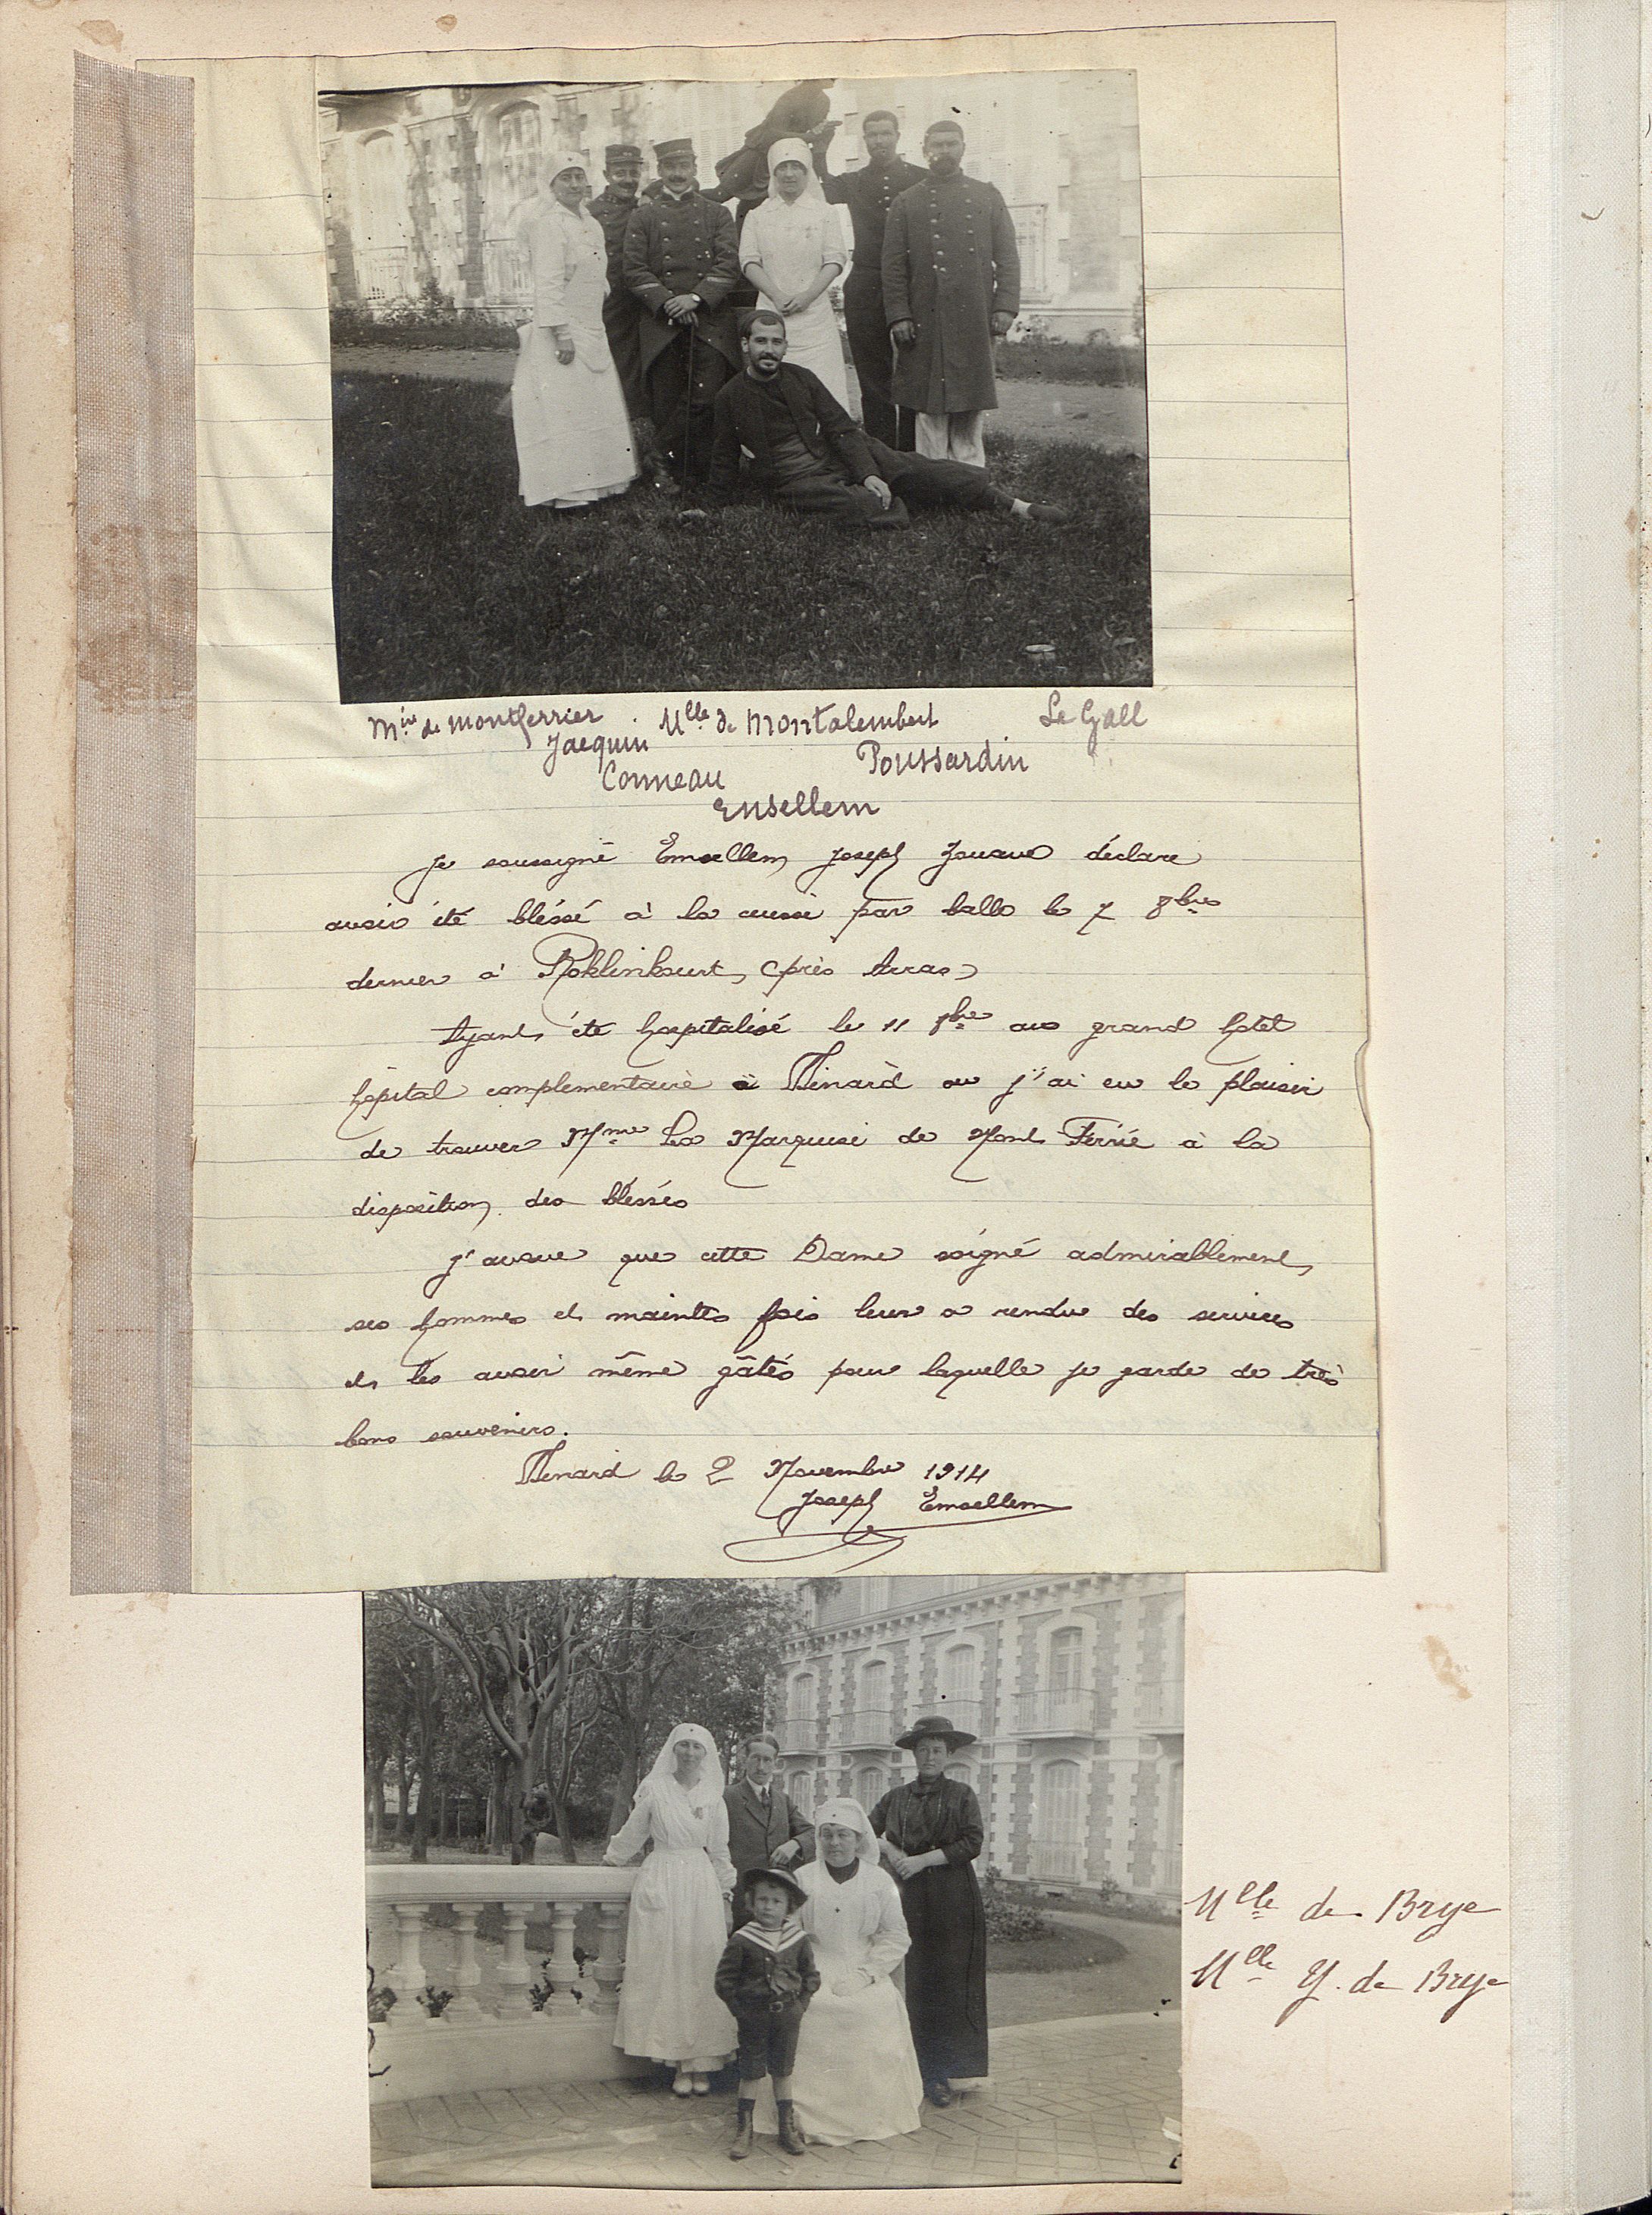 Mise de Montferrier Mlle de Montalembert Le Gall
Jacquin Poussardin
Conneau
Ensellem
Je soussigné Emsellem Joseph Zouave déclare
avoir été bléssé à la cuisse par balle le 7 8bre
dernier à Roklinkourt (près Arras)
Ayant été hospitalisé le 11 8bre au grand hotel
hôpital complementaire à Dinard ou j'ai eu le plaisir
de trouver Mme La Marquise de Mont Ferrié à la
disposition des bléssés
J'avoue que cette Dame soigné admirablement
ses hommes et maintes fois leur a rendu des services
et les avoir même gâtés pour laquelle je garde de très
bons souvenirs.
Dinard le 2 Novembre 1914
Joseph Emsellem
Mlle de Brye
Mlle Y. de Brye